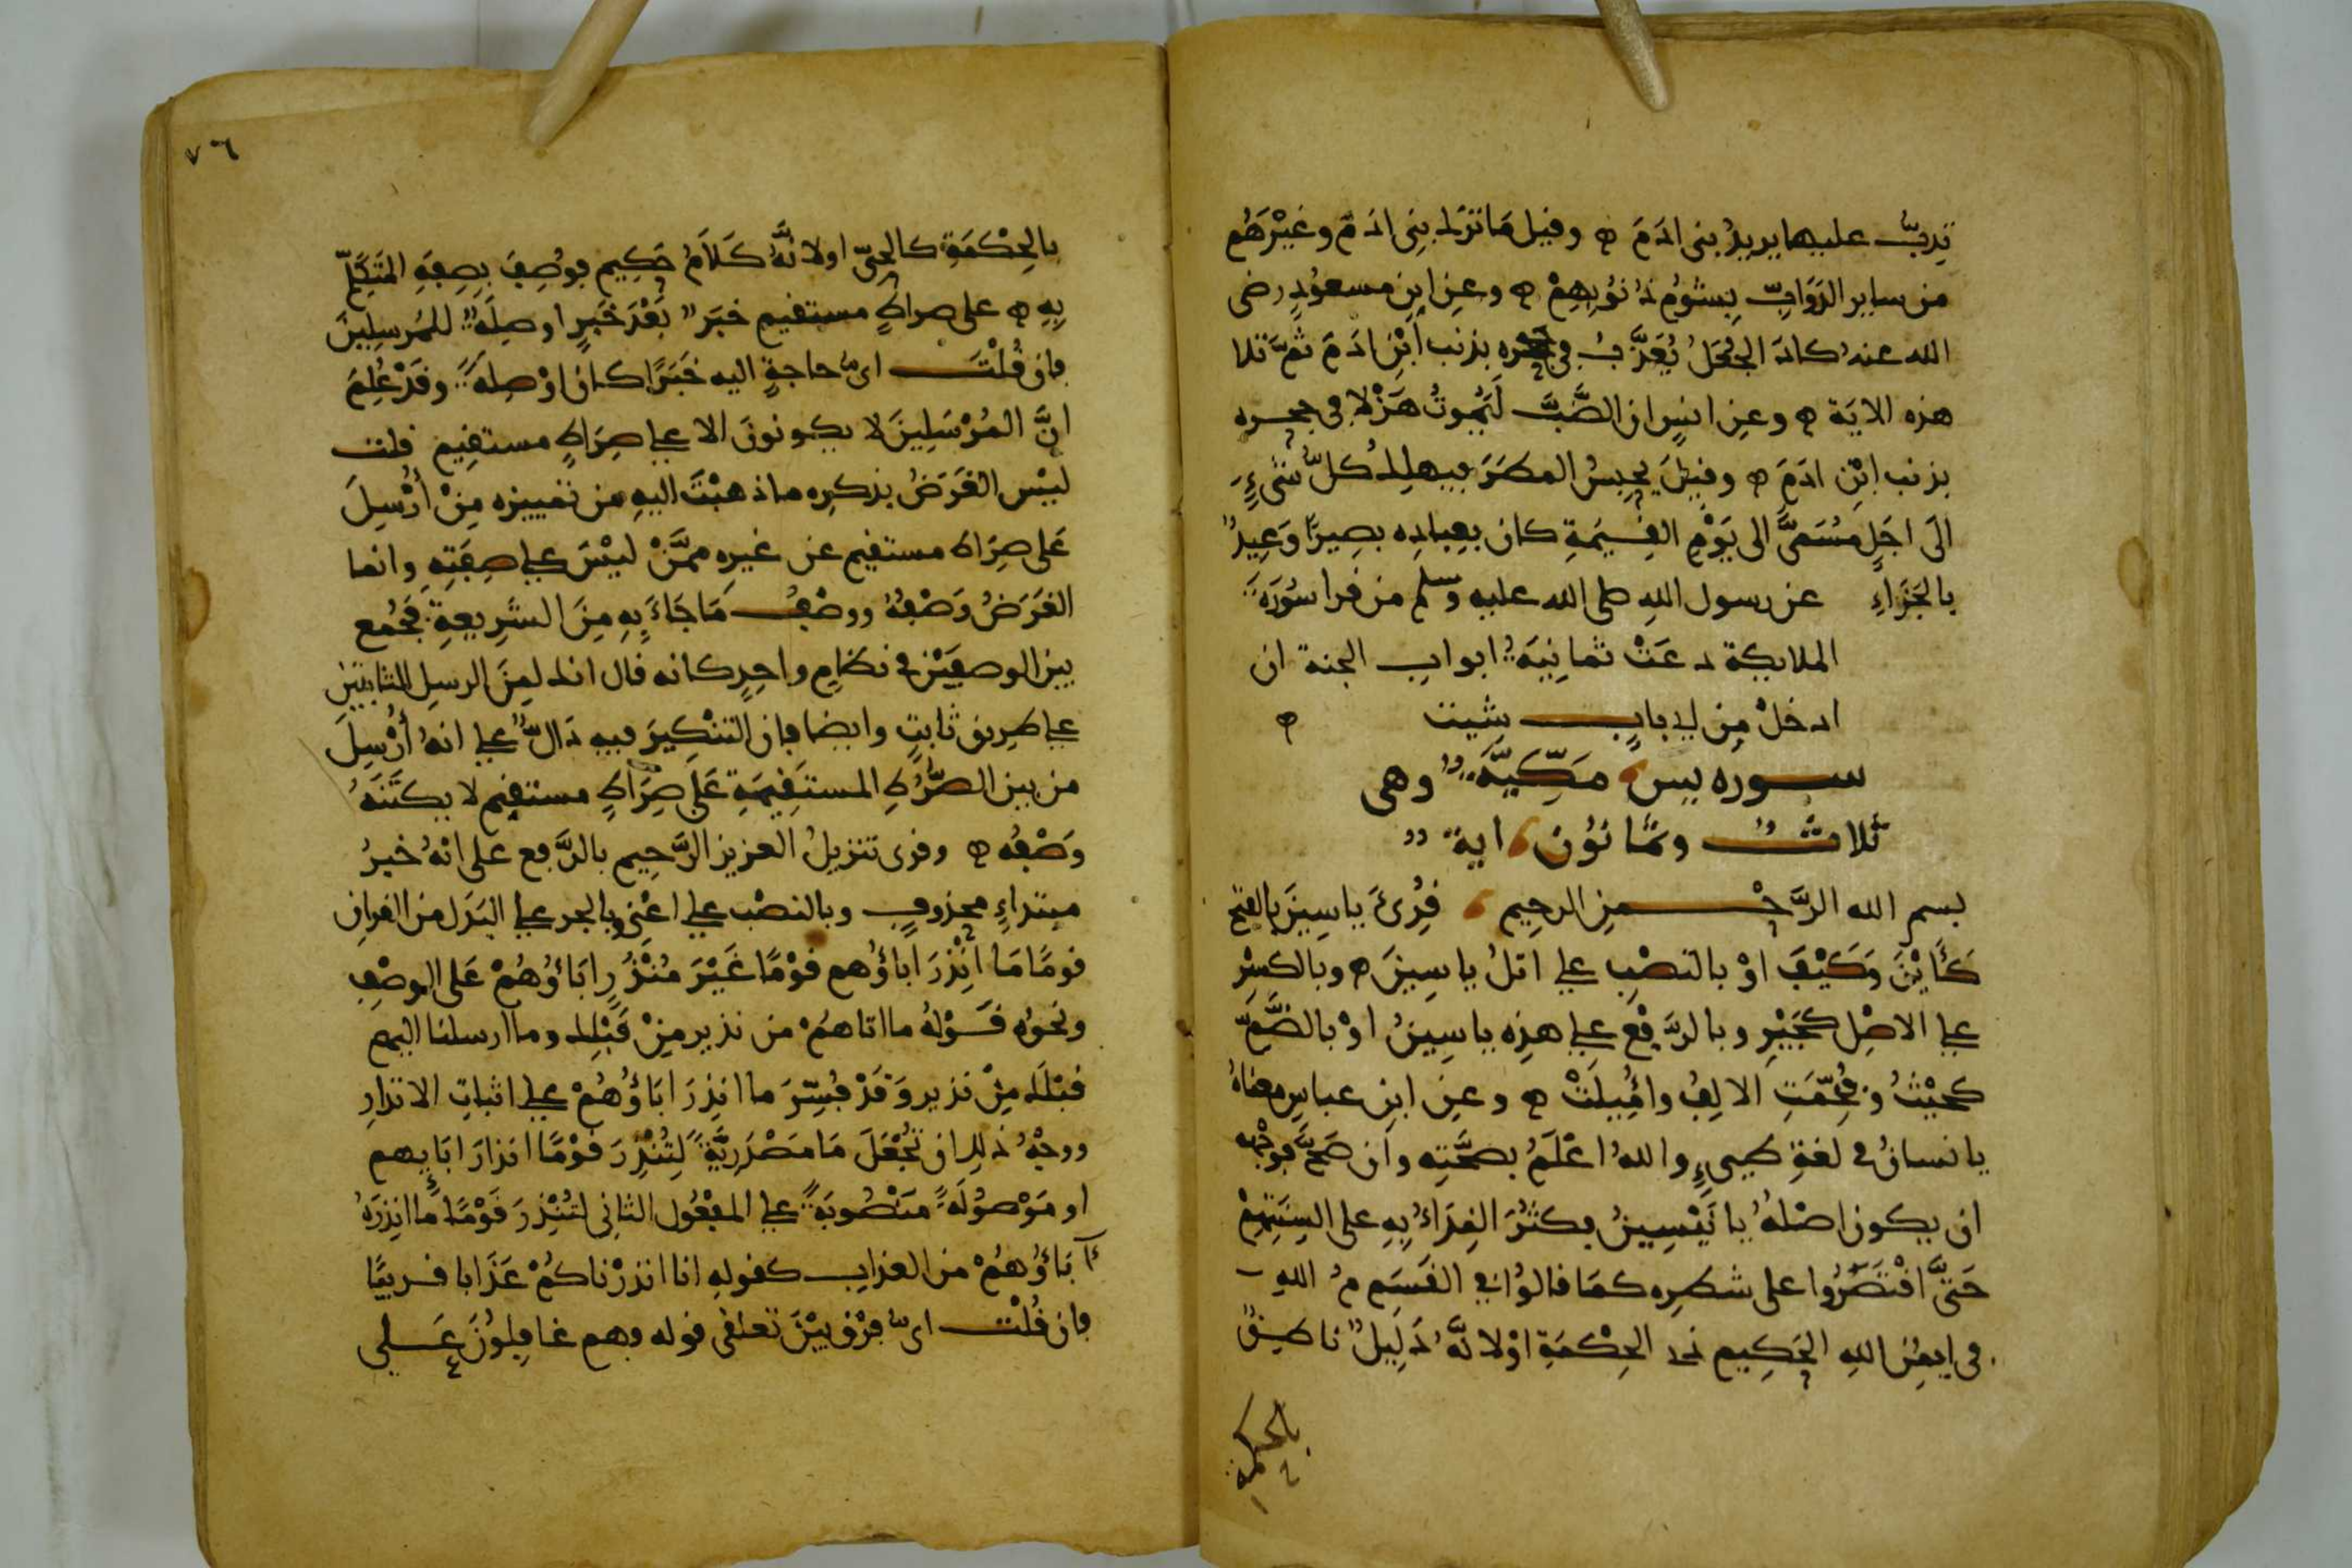 تَدِبُّ عليها يريدُ بني ادَمَ ۞ وقيل مَا تَرَكَ بنِى ادَمَ وغَيْرَهُم
من ساير الدَوَابِّ بِشُومِ ذُنُوبِهِمْ ۞ وعن ابنِ مسعُودٍ رضى
الله عنه كادَ الجُعَلُ يُعَذَّبُ في جحره بذنب ابْنِ ادَمَ ثمَّ تلا
هذه الايَة ۞ وعن انسٍ ان الضَّبَّ لَيَمُوتُ هَزْلا في جحره
بذنب ابْنِ ادَمَ ۞ وقيلَ يحبِسُ المطَرَ فيهلِكُ كلُّ شىءٍ
الَى اجَلٍ مُسَمَّى الى يَوْمِ القِيٰمَةِ كان بعِبادِه بصِيرًا وَعِيدٌ
بالجَزاءِ عن رسول اللهِ صلى الله عليه وسلم من قرا سُورَةَ
الملايكة دعَتْ ثمانِيَةُ ابوابِ الجنة ان
ادخلْ مِن اي بابٍ شيت ۞
سورة يس مَكِّيَّةٌ وهى
ثلاثٌ وثمانُونَ اية
بسم الله الرَّحْمن الرحِيمِ قُرِئَ ياسِينَ بالفتح
كَأَيْنَ وَكَيْفَ اوْ بالنصْبِ على اتلُ ياسِينَ ۞ وبالكسْر
على الاصْلِ كجَيْرِ وبالرَّفْعِ على هذِه ياسِينُ اوْ بالضَّمِّ
كحَيْثُ وفُخِّمَتِ الالِفُ وامُيلَتْ ۞ وعن ابنِ عباسٍ معناهُ
يا انسانُ في لغةِ طيىءٍ واللهُ اعْلَمُ بصحَّتِه وان صَحَّ فوجْهه
ان يكون اصْلهُ يا نَيْسِينُ فكثُرَ النِدَاءُ بِهِ على السِنَتِهِمْ
حَتَّى اقْتَصَرُوا على شطرِه كمَا قالوُا في القَسَمِ مُ اللهِ
في ايمُنِ اللهِ الحَكِيمِ ذى الحِكْمَةِ اوْ لانَّهُ دَلِيلٌ ناطِقٌ
بالحكمة
٧٦
بالحِكْمَةِ كالحىِّ او لانَّهُ كَلَامُ حَكِيمٍ فوُصِفَ بِصِفَةِ المتَكَلِّمِ
بِهِ ۞ على صراطٍ مستقيمٍ خبَرٌ بَعْدَ خَبَرٍ او صِلَةٌ للمُرسلِينَ
فان قُلْتَ اىُّ حاجةٍ اليه خَبَرًا كان اوْ صِلَةً وقَدْ عُلِمَ
انَّ المُرْسَلِينَ لا يكونونَ الا على صِرَاطٍ مستقِيمٍ قلت
ليْس الغَرَضُ بذكرِه ما ذهبْتَ اليهِ من تمييزه مِنْ أُرْسِلَ
عَلى صِرَاط مستقيم عن غيرِه ممَّنْ ليْسَ على صِفَتِهِ وانما
الغَرَضُ وَصْفُهُ ووصْفُ مَا جَاءَ بِهِ مِنَ الشَّرِيعةِ فجُمع
بين الوصفَيْن في نظامٍ واحِدٍ كانه قال انك لمِنَ الرسِل الثابتين
على طريق ثابتٍ وايضا فان التَنْكِيرَ فيه دَالٌّ على انهُ أُرْسِلَ
من بين الصُّرُطِ المستَقِيمَةِ عَلى صِرَاطٍ مستقيم لا يكتَنَهُ
وَصْفُه ۞ وقرى تنزيلُ العزيز الرَّحِيمِ بالرَّفع على انهُ خبرُ
مبتداءٍ محذوفٍ وبالنصْب على اعْنِى وبالجر على البَدَل من القران
قومًا مَا انْذِرَ اباؤُهم قوْمًا غَيْرَ مُنْذَرٍ ابَاؤُهُمْ عَلى الوصفِ
ونحوُه قَوْلهُ ما اتاهُمْ من نذير مِنْ قَبْلِك وما ارسلنا اليهم
قبْلَك مِنْ نذير وَقَدْ فُسِّرَ ما انذِرَ ابَاؤُهُمْ على اثباتِ الانذارِ
ووجْهُ ذلك ان تُجْعَلَ مَا مَصْدَرِيَّةً لِتُنْذِرَ قوْمًا انذارَ ابَايهم
او مَوْصُولَةً مَنْصُوبَةً على المفْعُول الثانى لتُنْذِرَ قَوْمًا مَا انذِرَهُ
آبَاؤُهُمْ من العذابِ كقوله انا انذرْناكُمْ عَذَابا قريبًا
فان قُلْت اىُّ فرْق بيْنَ تعلقى قوله فهم غافِلُونَ عَلى